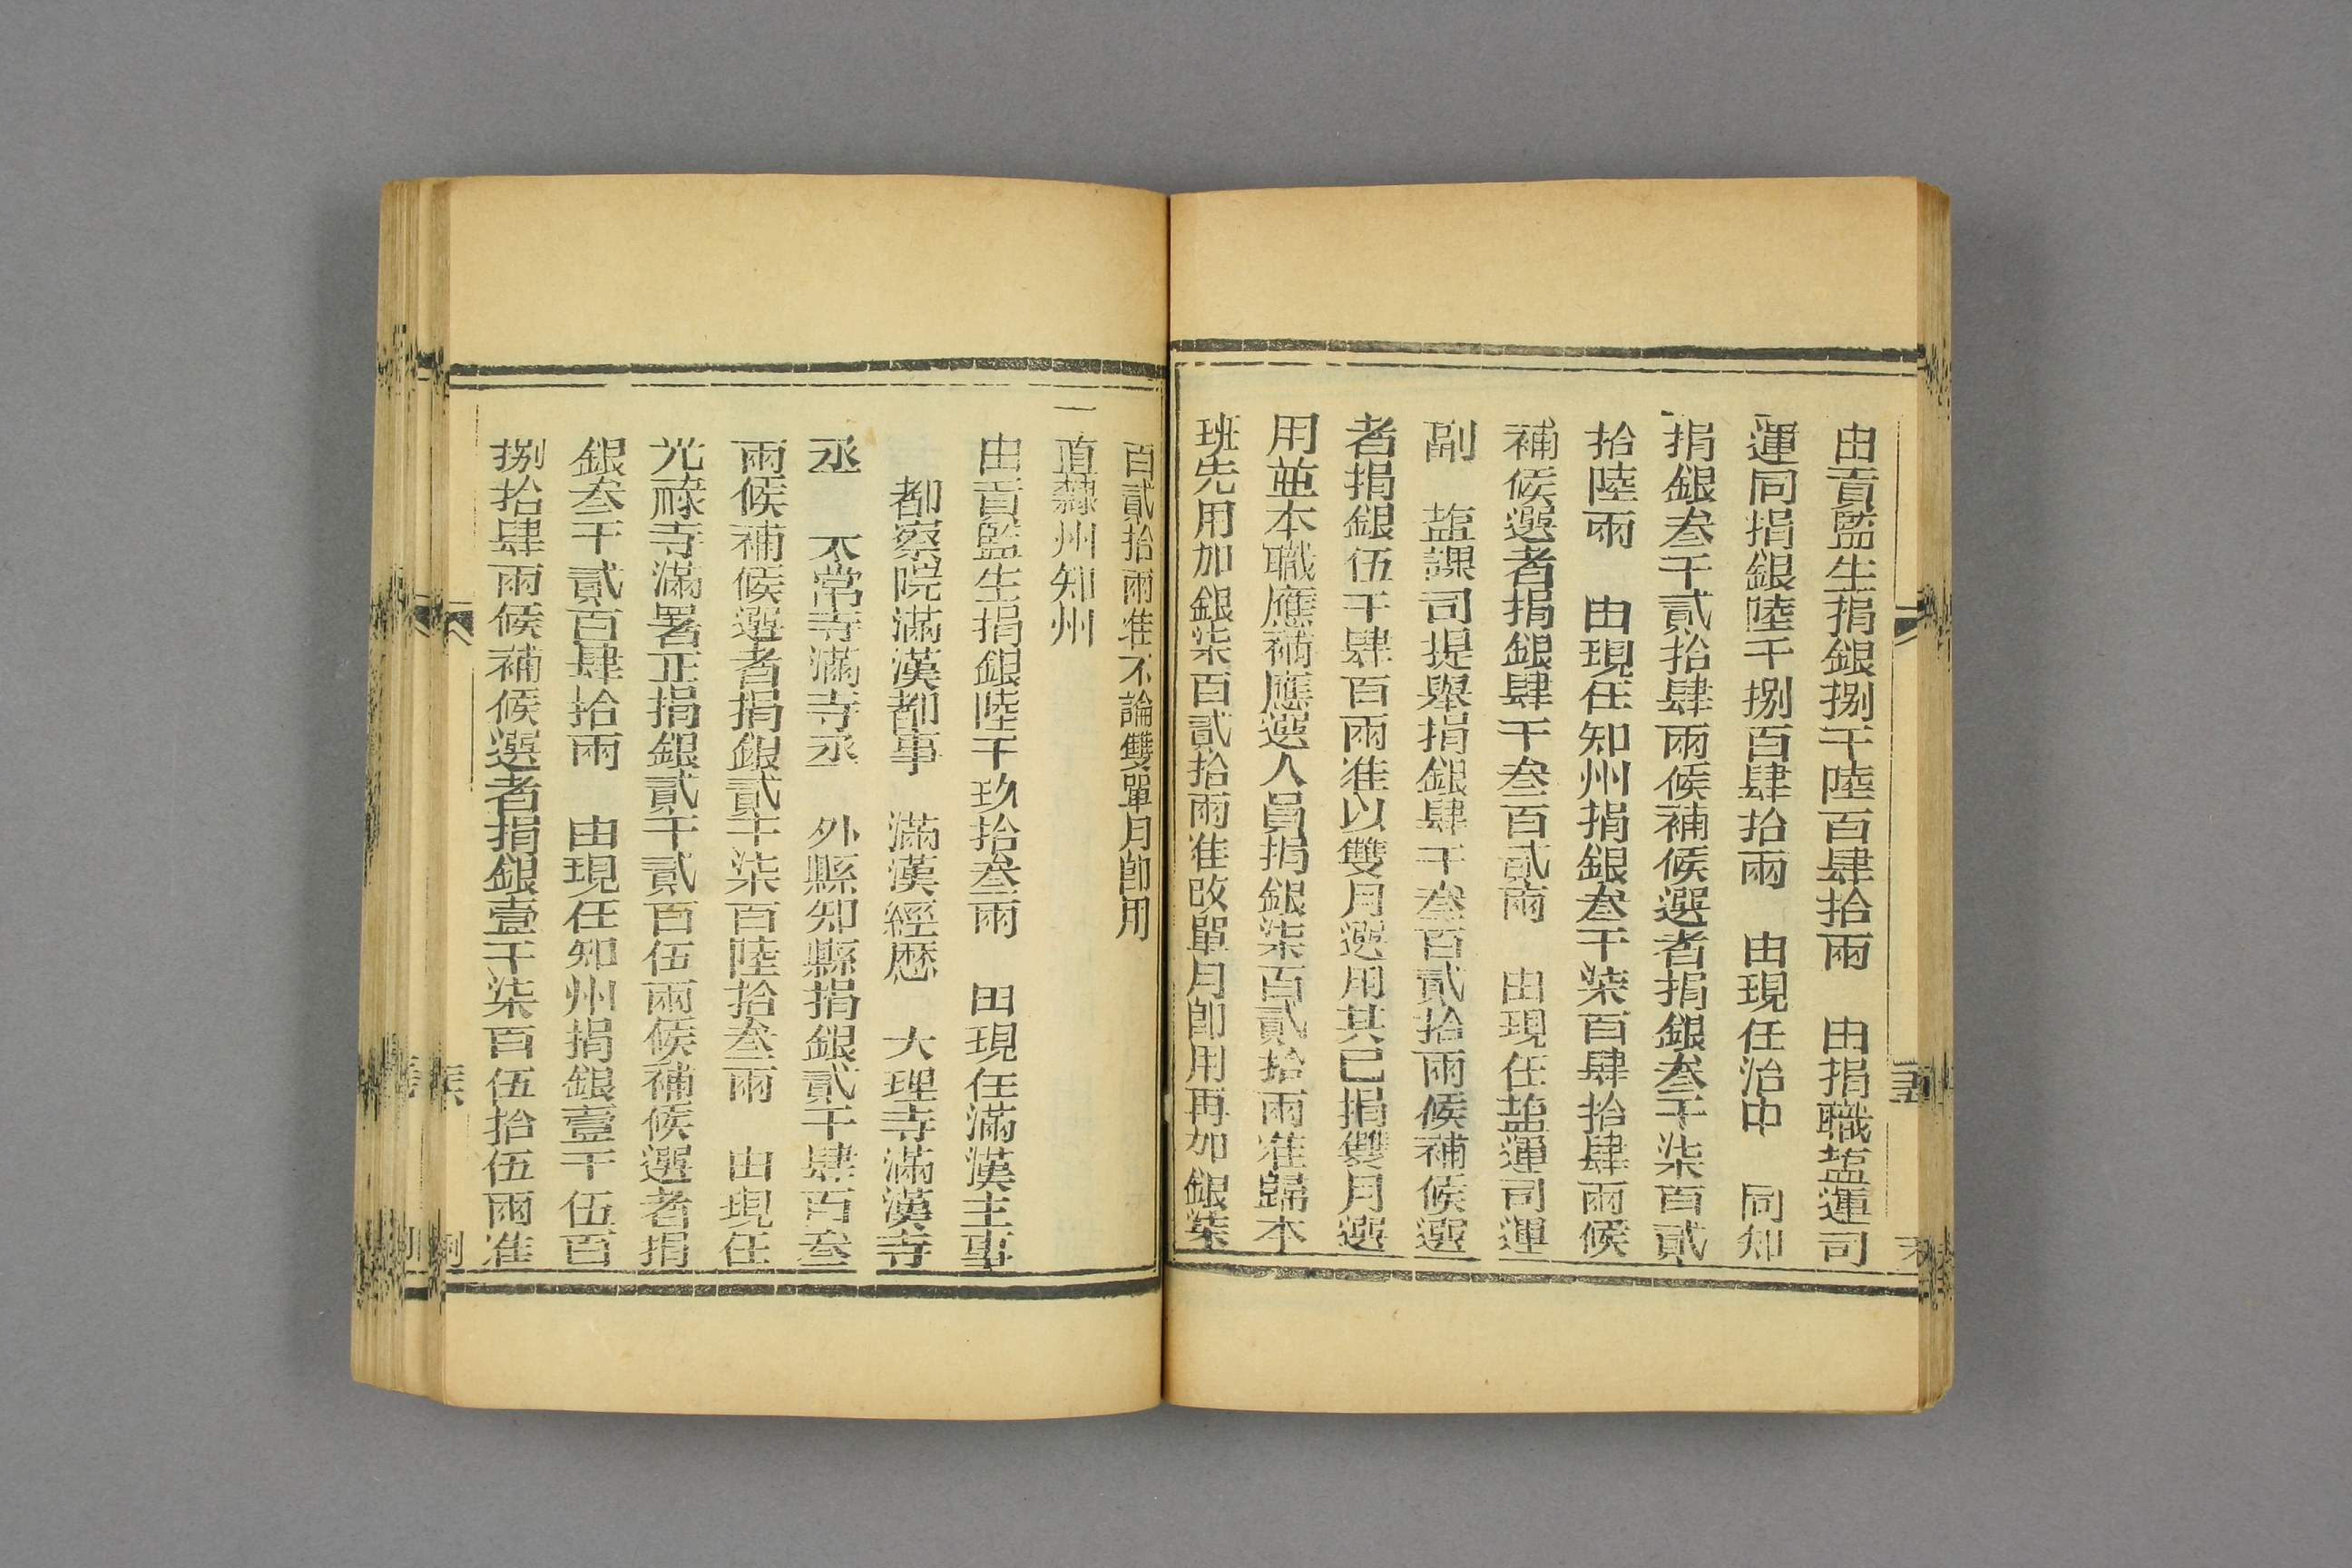 由貢監生捐銀捌千陸百肆拾兩　由捐職塩運司
運同捐銀陸千捌百肆拾兩　由現任治中　同知
捐銀叁千貳拾肆兩候補候選者捐銀叁千柒百貳
拾陸兩　由現任知州捐銀叁千柒百肆拾肆兩候
補候選者捐銀肆千叁百貳兩　由現任塩運司運
副　塩課司提舉捐銀肆千叁百貳拾兩候補候選
者捐銀伍千肆百兩准以雙月選用其已捐雙月選
用並本職應補應選人員捐銀柒百貳拾兩准歸本
班先用加銀柒百貳拾兩准改單月卽用再加銀柒
百貳拾兩准不論雙單月卽用
一直隸州知州
由貢監生捐銀陸千玖拾叁兩　由現任滿漢主事
都察院滿漢都事　滿漢經歷　大理寺滿漢寺
丞　太常寺滿寺丞　外縣知縣捐銀貳千肆百叁
兩候補候選者捐銀貳千柒百陸拾叁兩　由現任
光祿寺滿署正捐銀貳千貳百伍兩候補候選者捐
銀叁千貳百肆拾兩　由現任知州捐銀壹千伍百
捌拾肆兩候補候選者捐銀壹千柒百伍拾伍兩准